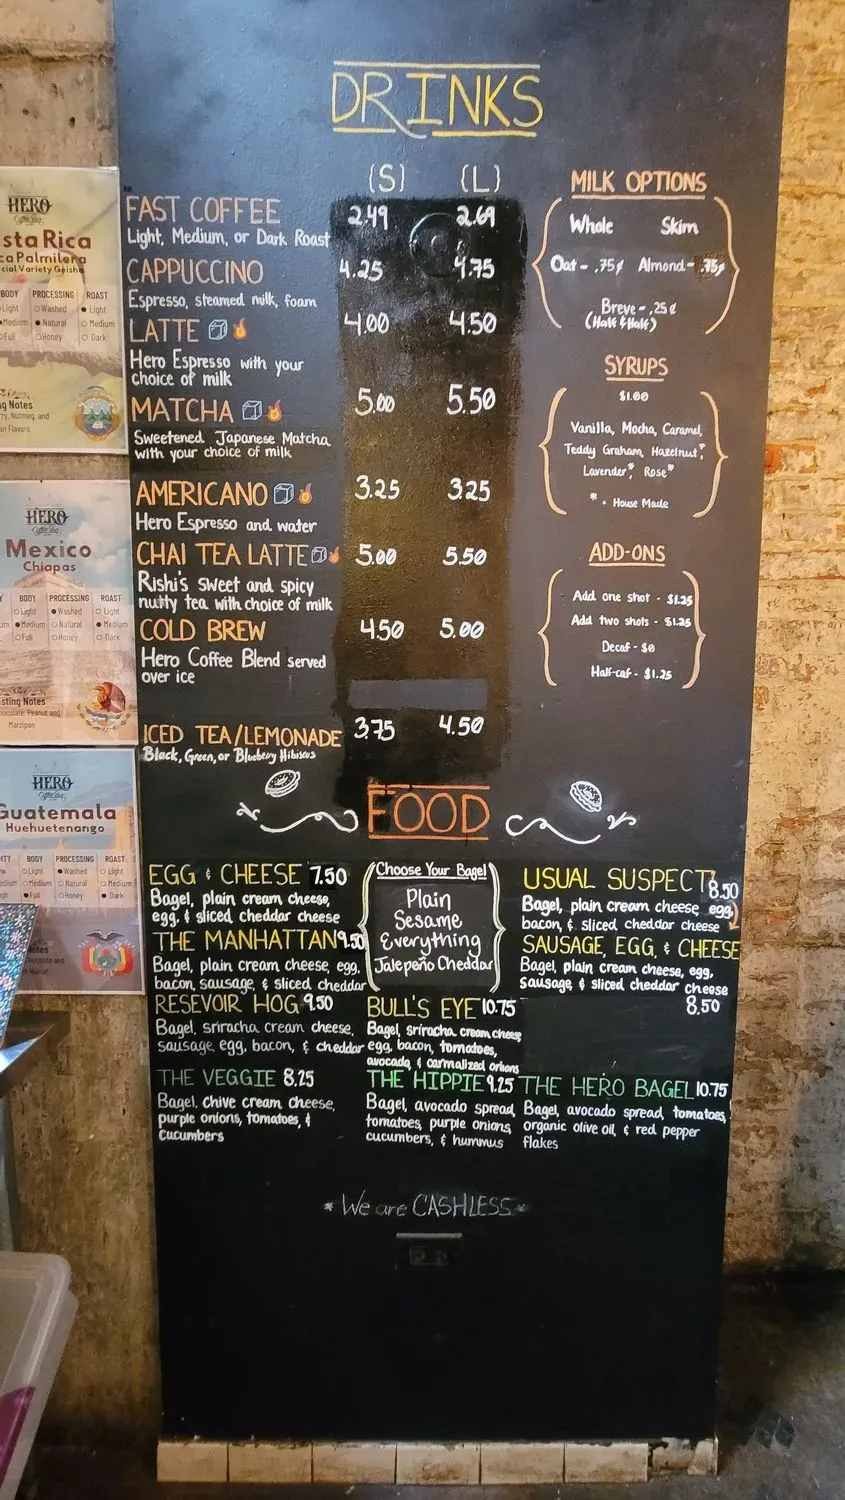 DRINKS
(S) (L)
FAST COFFEE 2.49 2.69
Light, Medium, or Dark Roast
CAPPUCCINO 4.25 4.75
Espresso, steamed milk, foam
LATTE 4.00 4.50
Hero Espresso with your
choice of milk
MATCHA 5.00 5.50
Sweetened Japanese Matcha
with your choice of milk
AMERICANO 3.25 3.25
Hero Espresso and water
CHAI TEA LATTE 5.00 5.50
Rishi's sweet and spicy
nutty tea with choice of milk
COLD BREW 4.50 5.00
Hero Coffee Blend served
over ice
ICED TEA/LEMONADE 3.75 4.50
Black, Green, or Blueberry Hibiscus
MILK OPTIONS
Whole Skim
Oat - .75¢ Almond - .75¢
Breve - .25¢
(Half & Half)
SYRUPS
$1.00
Vanilla, Mocha, Caramel,
Teddy Graham, Hazelnut*,
Lavender*, Rose*
* = House Made
ADD-ONS
Add one shot - $1.25
Add two shots - $1.25
Decaf - $0
Half-caf - $1.25
FOOD
EGG & CHEESE 7.50
Bagel, plain cream cheese,
egg, & sliced cheddar cheese
THE MANHATTAN 9.50
Bagel, plain cream cheese, egg,
bacon, sausage, & sliced cheddar
RESEVOIR HOG 9.50
Bagel, sriracha cream cheese,
sausage, egg, bacon, & cheddar
THE VEGGIE 8.25
Bagel, chive cream cheese,
purple onions, tomatoes, &
cucumbers
Choose Your Bagel
Plain
Sesame
Everything
Jalepeño Cheddar
BULL'S EYE 10.75
Bagel, sriracha cream cheese
egg, bacon, tomatoes,
avocado, & carmalized onions
THE HIPPIE 9.25
Bagel, avocado spread,
tomatoes, purple onions,
cucumbers, & hummus
USUAL SUSPECT 8.50
Bagel, plain cream cheese egg,
bacon, & sliced cheddar cheese
SAUSAGE, EGG, & CHEESE
Bagel, plain cream cheese, egg,
sausage & sliced cheddar cheese
8.50
THE HERO BAGEL 10.75
Bagel, avocado spread, tomatoes,
organic olive oil, & red pepper
flakes
* We are CASHLESS *
HERO
Coffee Bar
sta Rica
ca Palmilera
cial Variety Geisha
BODY PROCESSING ROAST
Light Washed Light
Medium Natural Medium
Full Honey Dark
g Notes
rry, Nutmeg, and
an Flavors
HERO
Coffee Bar
Mexico
Chiapas
BODY PROCESSING ROAST
Light Washed Light
Medium Natural Medium
Full Honey Dark
sting Notes
hocolate, Peanut and
Marzipan
HERO
Coffee Bar
Guatemala
Huehuetenango
BODY PROCESSING ROAST
Light Washed Light
Medium Natural Medium
Full Honey Dark